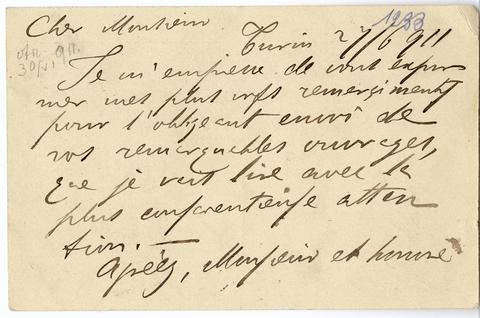 Cher Monsieur
1933
Turin 27/6 911
911.
30/VI
Je m'empresse de vous expri
mer mes plus vifs remerciments
pour l'obligeant envoi de
vos remarquables ouvrages,
que je vais lire avec la
plus conscientieuse atten
tion. —
Agréez, Monsieur et honoré